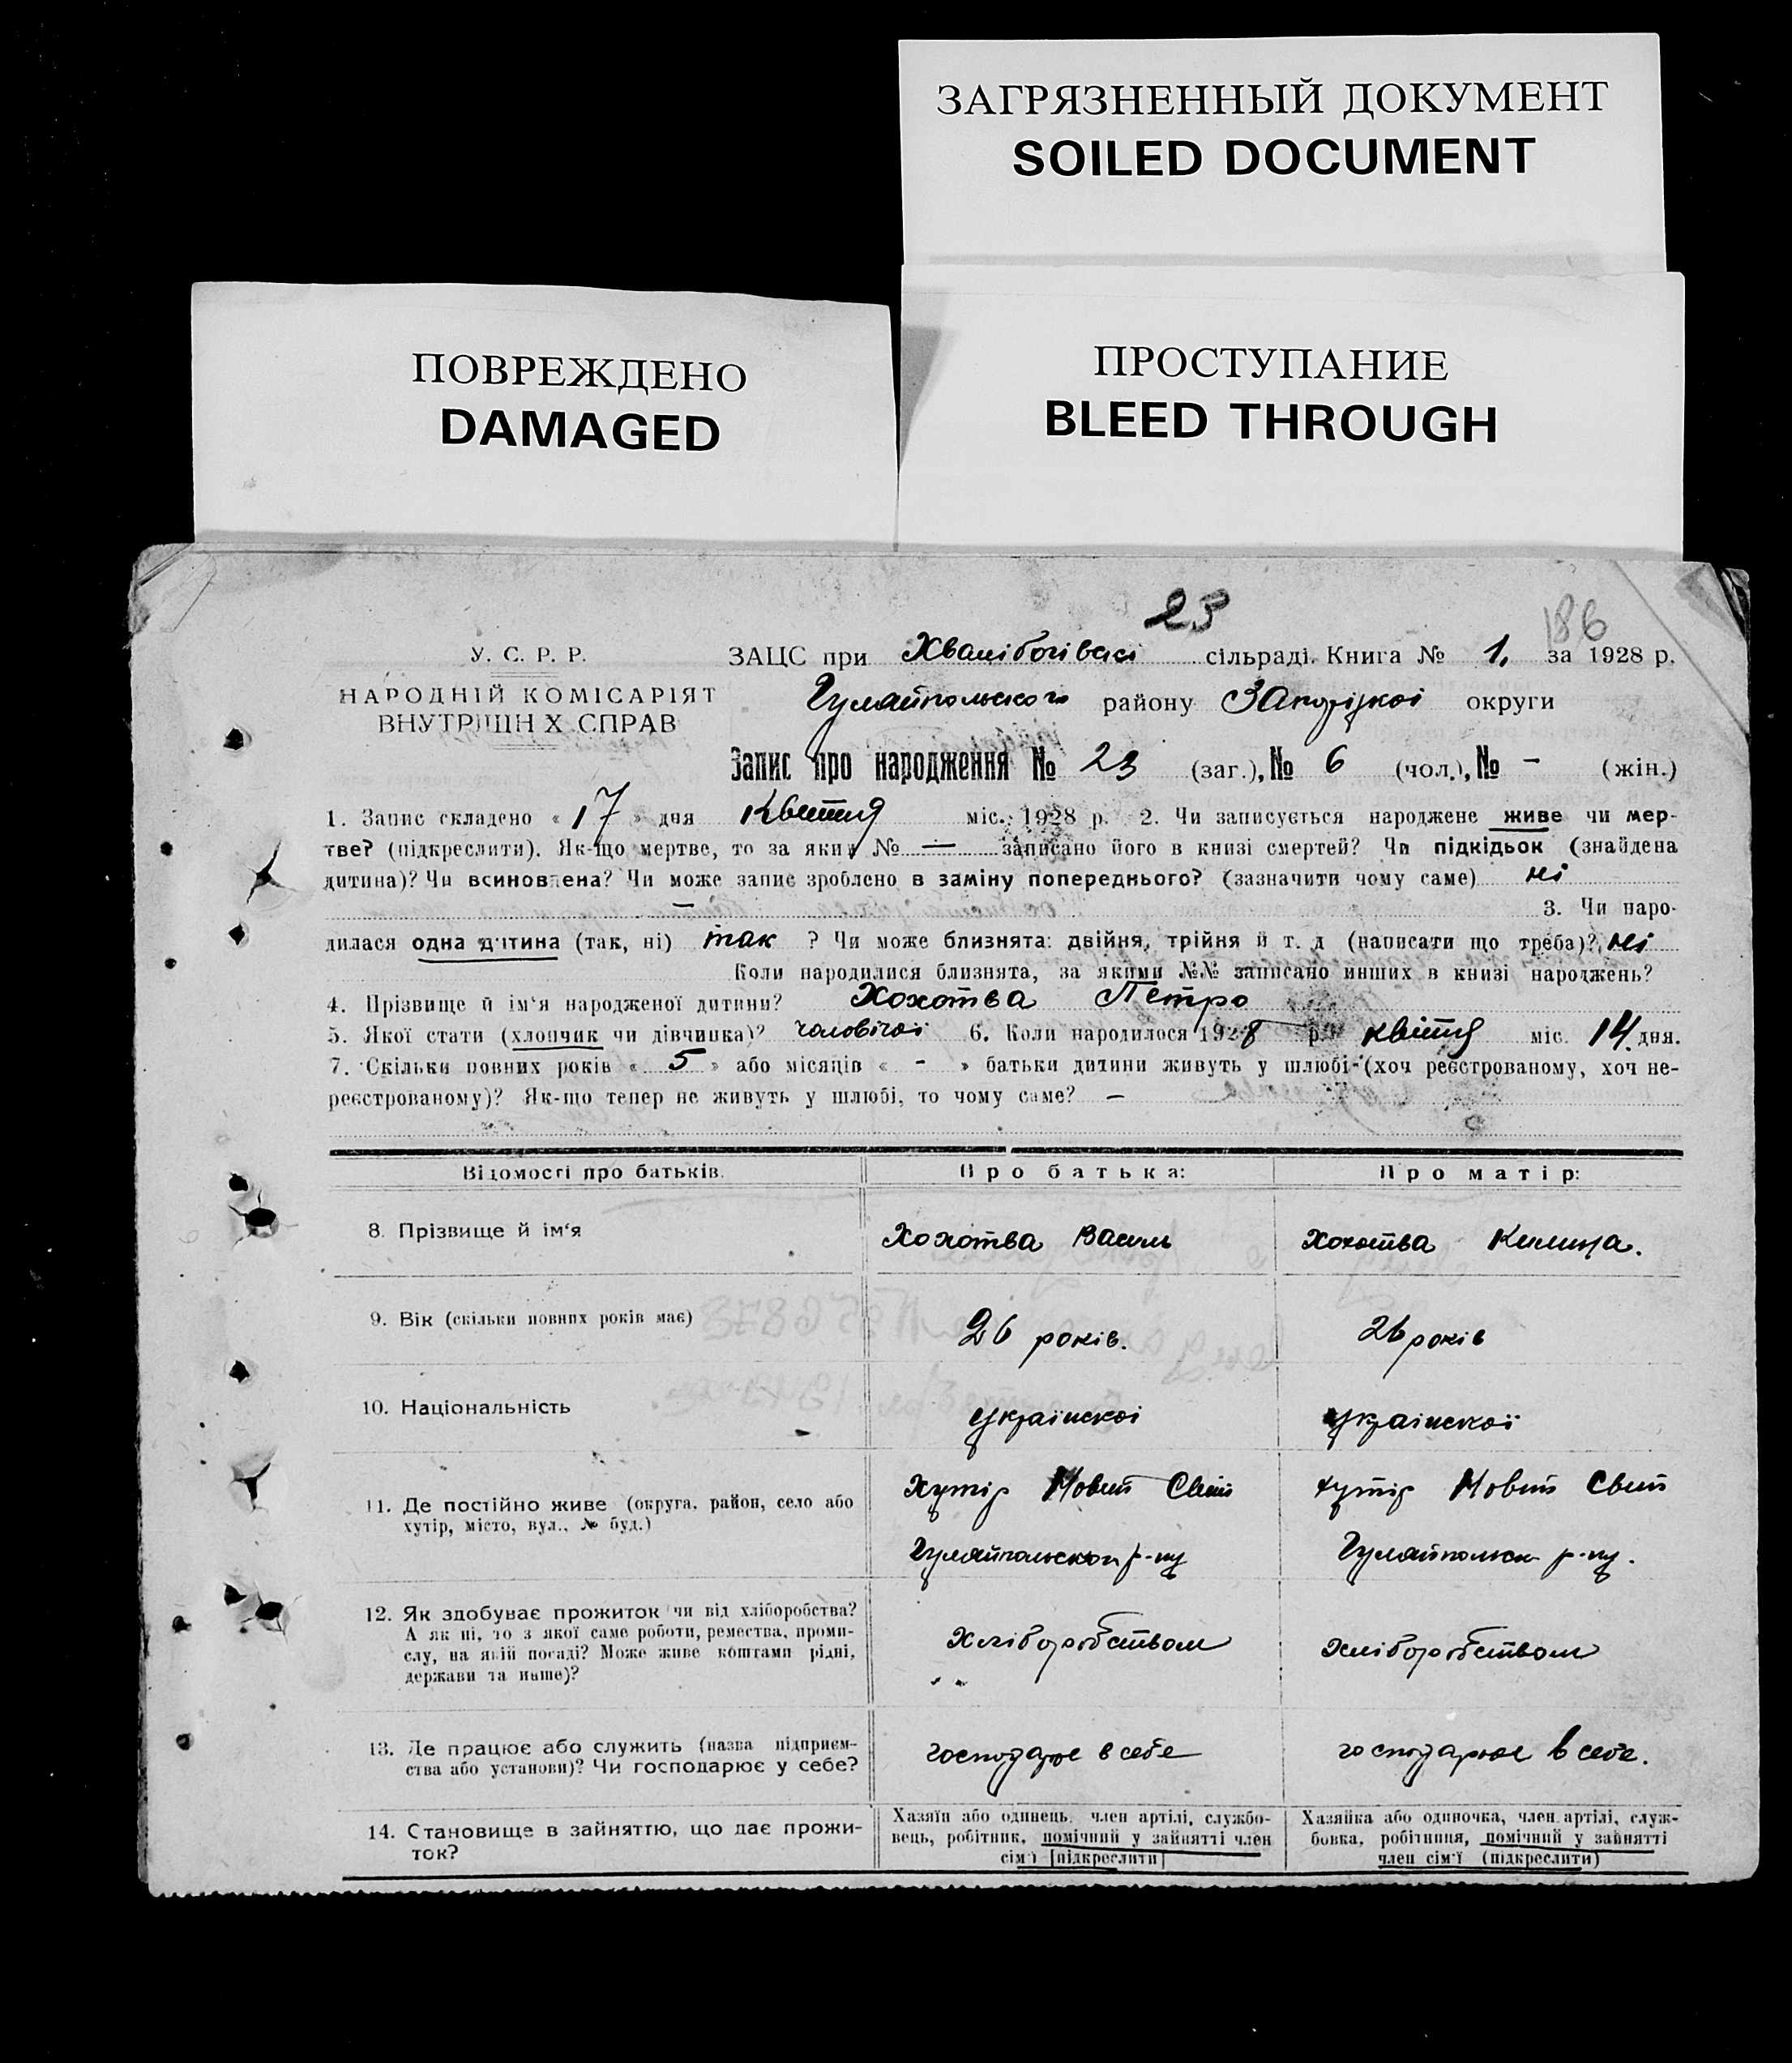 ЗАГРЯЗНЕННЫЙ ДОКУМЕНТ
SOILED DOCUMENT
ПОВРЕЖДЕНО
DAMAGED
ПРОСТУПАНИЕ
BLEED THROUGH
23
186
У. С. Р. Р.
НАРОДНІЙ КОМІСАРІЯТ
ВНУТРІШН Х СПРАВ
ЗАЦС при сільраді. Книга № 1. за 1928 р.
Гуляйпольского району Запоріжкоі округи
Запис про народження № 23 (заг.), № 6 (чол.), № - (жін.)
1. Запис складено « 17 » дня Квітня міс. 1928 р. 2. Чи записується народжене живе чи мер-
тве? (підкреслити). Як-що мертве, то за яким № — записано його в книзі смертей? Чи підкідьок (знайдена
дитина)? Чи всиновлена? Чи може запис зроблено в заміну попереднього? (зазначити чому саме) ні
— 3. Чи наро-
дилася одна дитина (так, ні) так ? Чи може близнята: двійня, трійня й т. д (написати що треба)? ні
Коли народилися близнята, за якими №№ записано инших в книзі народжень?
4. Прізвище й ім'я народженої дитини? Хохотва Петро
5. Якої стати (хлопчик чи дівчинка)? чоловічоі 6. Коли народилося 1928 р. квітня міс. 14 дня.
7. Скільки повних років « 5 » або місяців « - » батьки дитини живуть у шлюбі (хоч реєстрованому, хоч не-
реєстрованому)? Як-що тепер не живуть у шлюбі, то чому саме? —
Відомості про батьків.
Про батька:
Про матір:
8. Прізвище й ім'я
Хохотва Василь
Хохотва Килина.
9. Вік (скільки повних років має)
26 років.
26 років
10. Національність
украінскоі
украінскоі
11. Де постійно живе (округа, район, село або
хутір, місто, вул., № буд.)
Хутір Новий Світ
Гуляйпольскои р-ну
хутір Новий Світ
Гуляйпольск р-ну.
12. Як здобуває прожиток чи від хліборобства?
А як ні, то з якої саме роботи, ремества, проми-
слу, на якій посаді? Може живе коштами рідні,
держави та инше)?
Хліборобством
Хліборобством
13. Де працює або служить (назва підприєм-
ства або установи)? Чи господарює у себе?
господарює в себе
господарює в себе.
14. Становище в зайняттю, що дає прожи-
ток?
Хазяїн або одинець, член артілі, службо-
вець, робітник, помічний у зайнятті член
сім'ї [підкреслити]
Хазяйка або одиночка, член артілі, служ-
бовка, робітниця, помічний у зайнятті
член сім'ї (підкреслити)